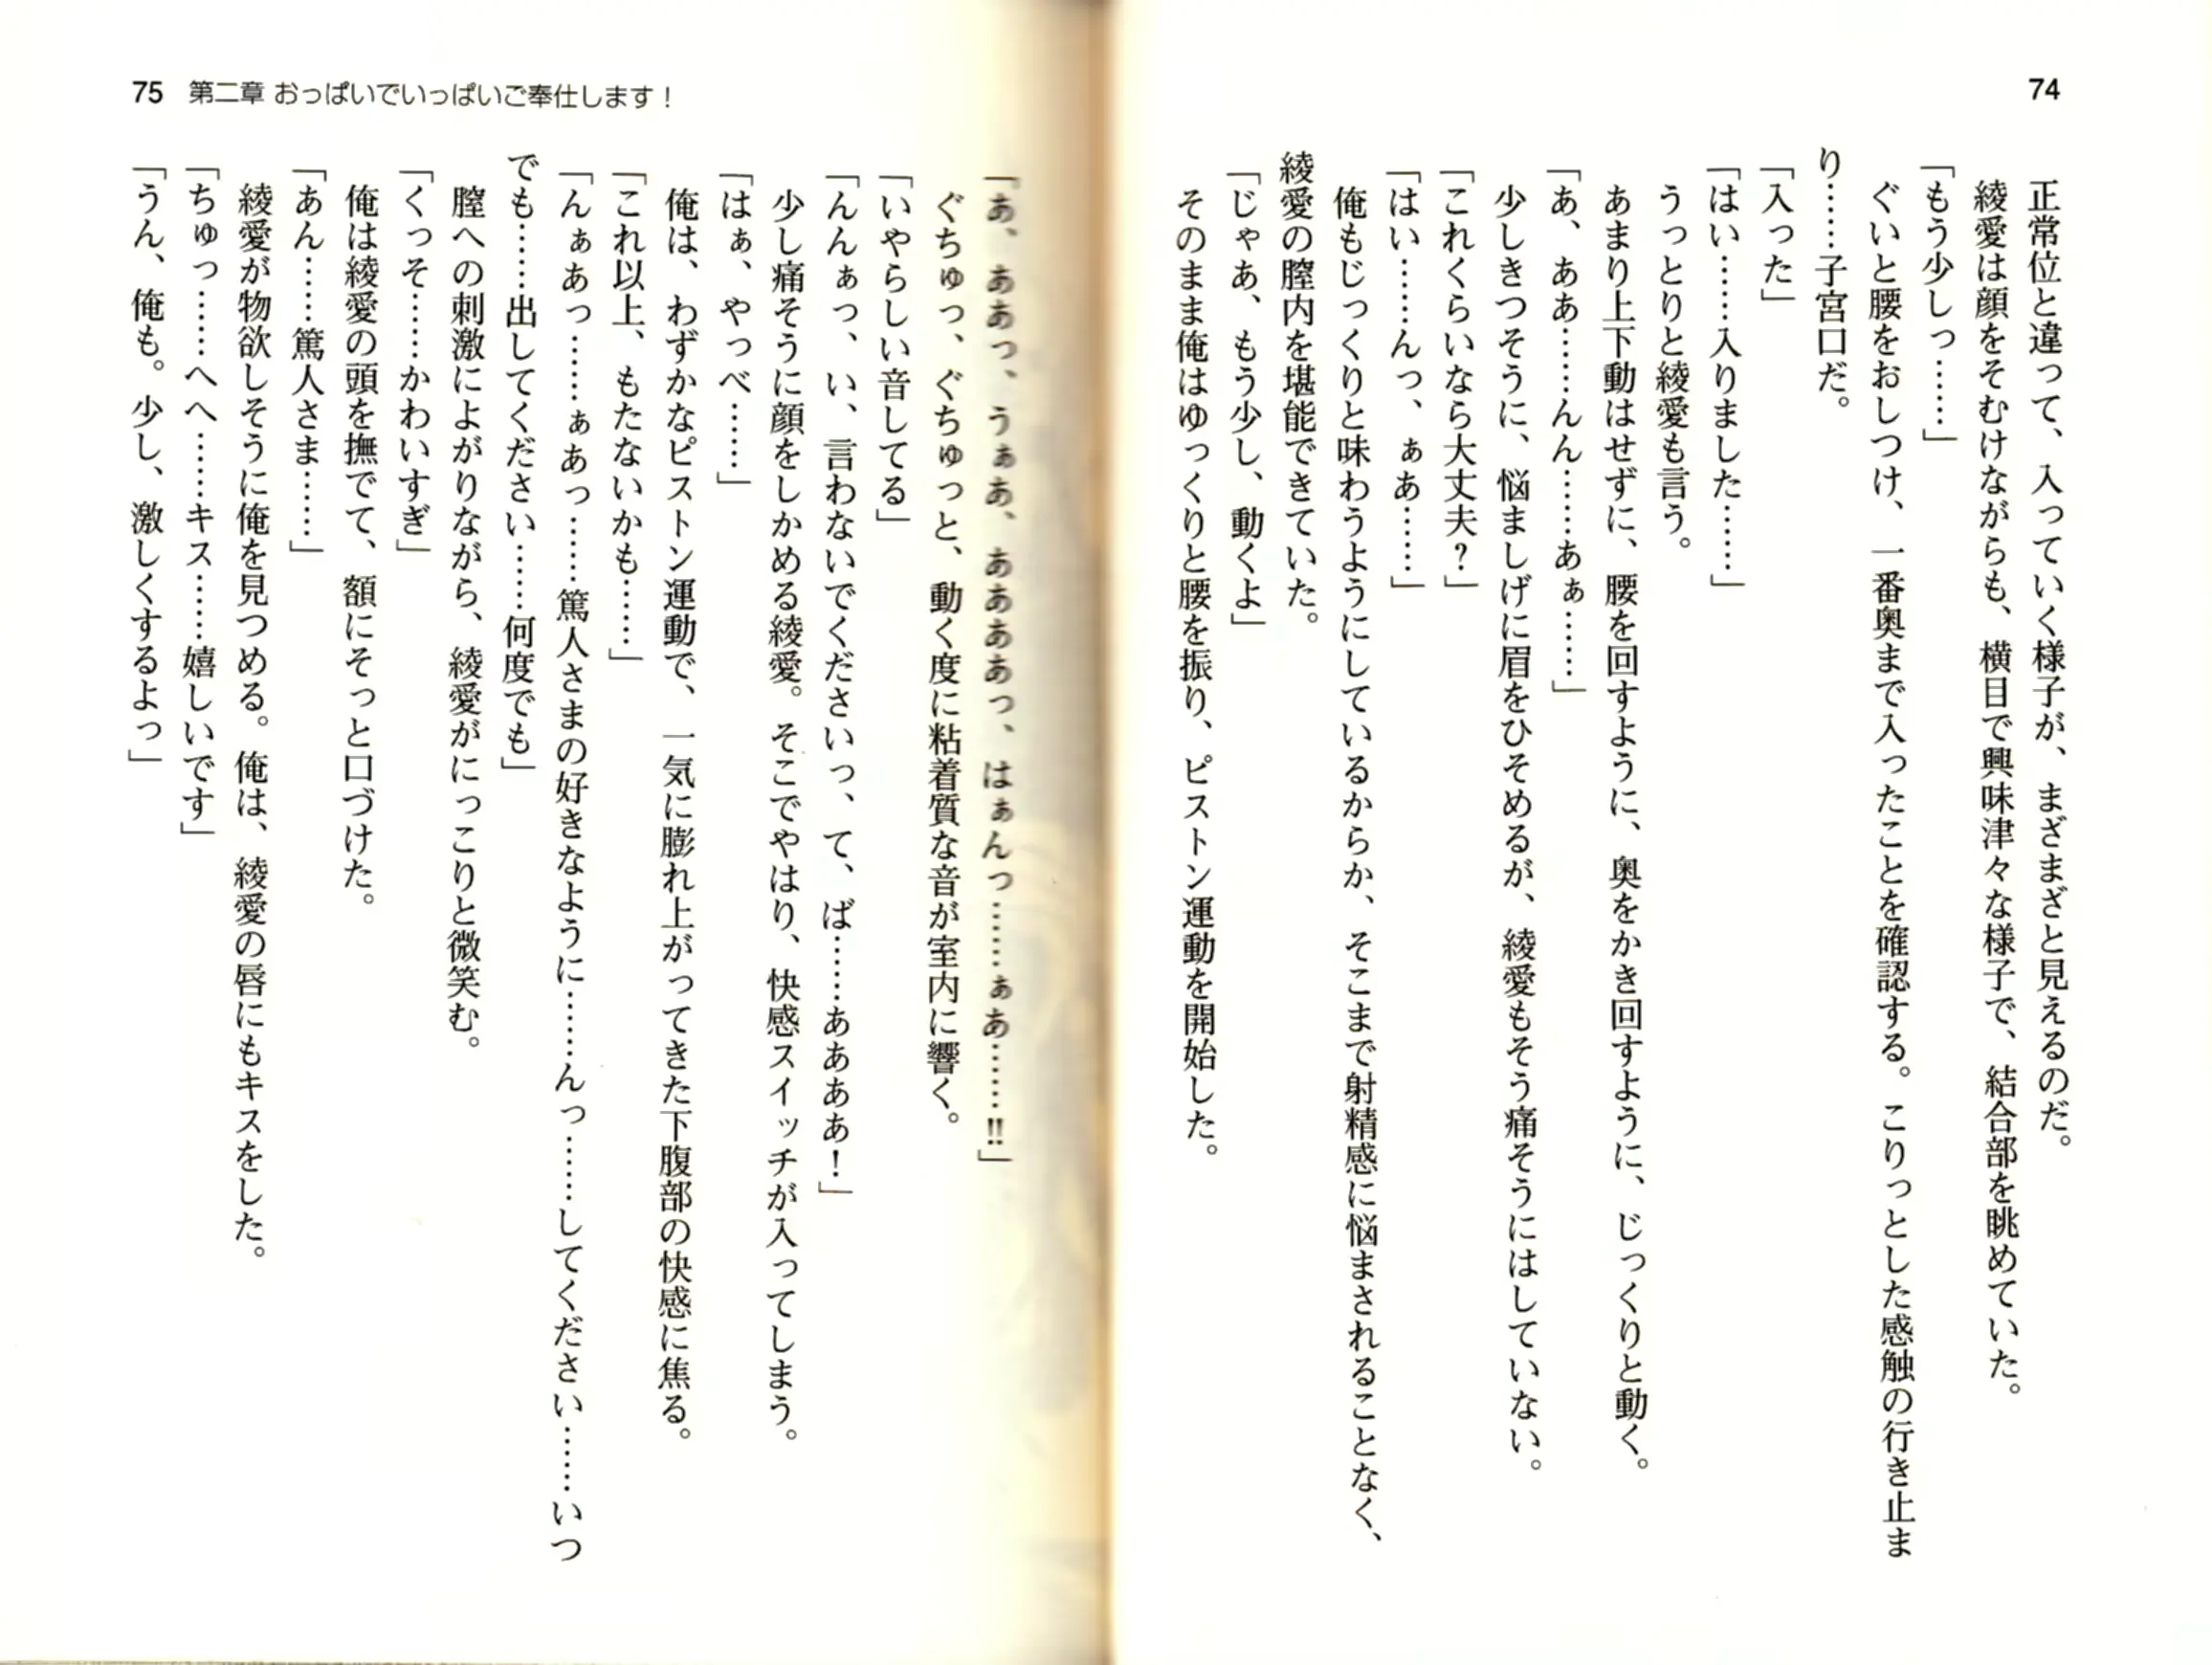 74
正常位と違って、入っていく様子が、まざまざと見えるのだ。
綾愛は顔をそむけながらも、横目で興味津々な様子で、結合部を眺めていた。
「もう少しっ……」
ぐいと腰をおしつけ、一番奥まで入ったことを確認する。こりっとした感触の行き止ま
り……子宮口だ。
「入った」
「はい……入りました……」
うっとりと綾愛も言う。
あまり上下動はせずに、腰を回すように、奥をかき回すように、じっくりと動く。
「あ、ああ……んん……あぁ……」
少しきつそうに、悩ましげに眉をひそめるが、綾愛もそう痛そうにはしていない。
「これくらいなら大丈夫？」
「はい……んっ、ぁあ……」
俺もじっくりと味わうようにしているからか、そこまで射精感に悩まされることなく、
綾愛の膣内を堪能できていた。
「じゃあ、もう少し、動くよ」
そのまま俺はゆっくりと腰を振り、ピストン運動を開始した。
75 第二章 おっぱいでいっぱいご奉仕します！
「あ、ああっ、うぁあ、ああああっ、はぁんっ……ぁあ……‼」
ぐちゅっ、ぐちゅっと、動く度に粘着質な音が室内に響く。
「いやらしい音してる」
「んんぁっ、い、言わないでくださいっ、て、ば……ああああ！」
少し痛そうに顔をしかめる綾愛。そこでやはり、快感スイッチが入ってしまう。
「はぁ、やっべ……」
俺は、わずかなピストン運動で、一気に膨れ上がってきた下腹部の快感に焦る。
「これ以上、もたないかも……」
「んぁあっ……ぁあっ……篤人さまの好きなように……んっ……してください……いつ
でも……出してください……何度でも」
膣への刺激によがりながら、綾愛がにっこりと微笑む。
「くっそ……かわいすぎ」
俺は綾愛の頭を撫でて、額にそっと口づけた。
「あん……篤人さま……」
綾愛が物欲しそうに俺を見つめる。俺は、綾愛の唇にもキスをした。
「ちゅっ……へへ……キス……嬉しいです」
「うん、俺も。少し、激しくするよっ」